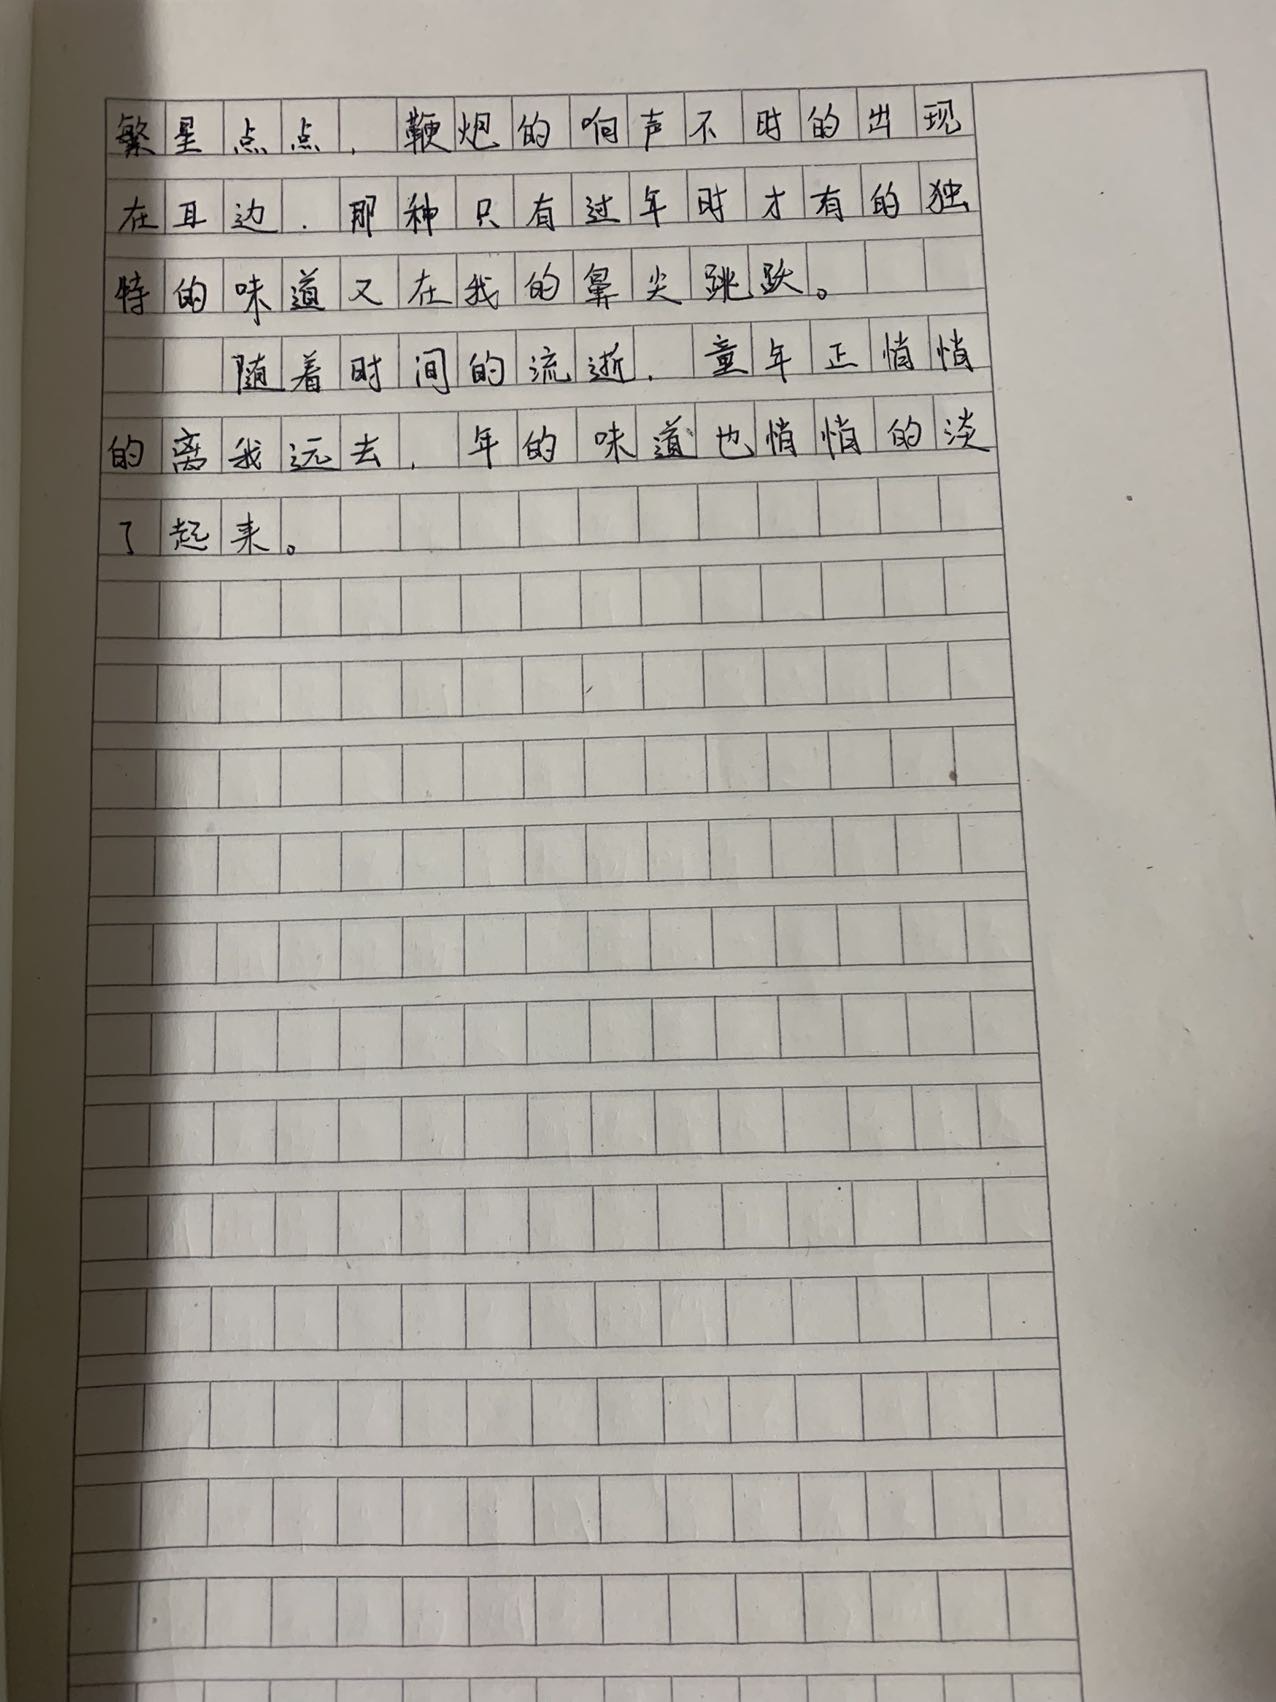 繁星点点，鞭炮的响声不时的出现
在耳边，那种只有过年时才有的独
特的味道又在我的鼻尖跳跃。
随着时间的流逝，童年正悄悄
的离我远去，年的味道也悄悄的淡
了起来。